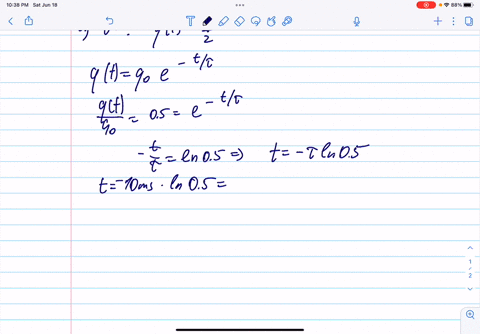 10:38 PM Sat Jun 18
88%
q(t) = q₀ e^(-t/τ)
q(t)/q₀ = 0.5 = e^(-t/τ)
-t/τ = ln 0.5 ⇒ t = -τ ln 0.5
t = -10ms · ln 0.5 =
1
2